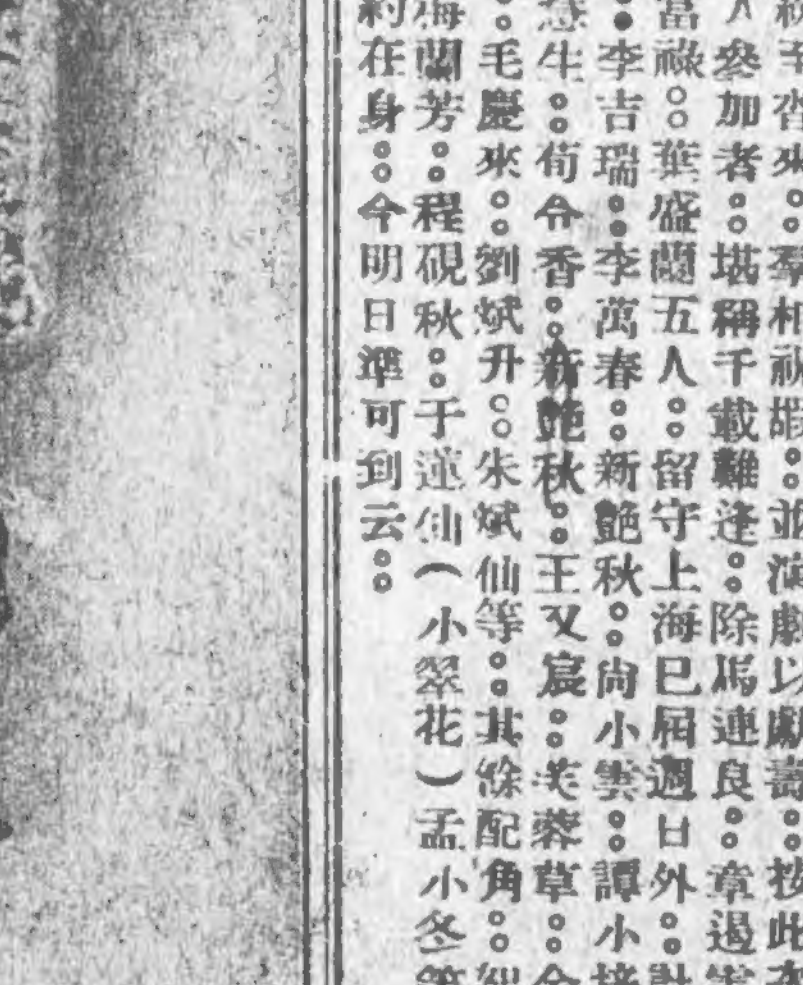 沓來。。羣相祝嘏。。並演劇以獻壽。。按此
人參加者。。堪稱千載難逢。。除馬連良。。章遏雲
富祿。。葉盛蘭五人。。留守上海已屆週日外。。計
。。李吉瑞。。李萬春。。新艷秋。。尙小雲。。譚小培
慧生。。荀令香。。新艷秋。。王又宸。。芙蓉草。。金
。。毛慶來。。劉斌升。。朱斌仙等。。其餘配角。。
梅蘭芳。。程硯秋。。于蓮仙(小翠花)孟小冬等
約在身。。今明日準可到云。。